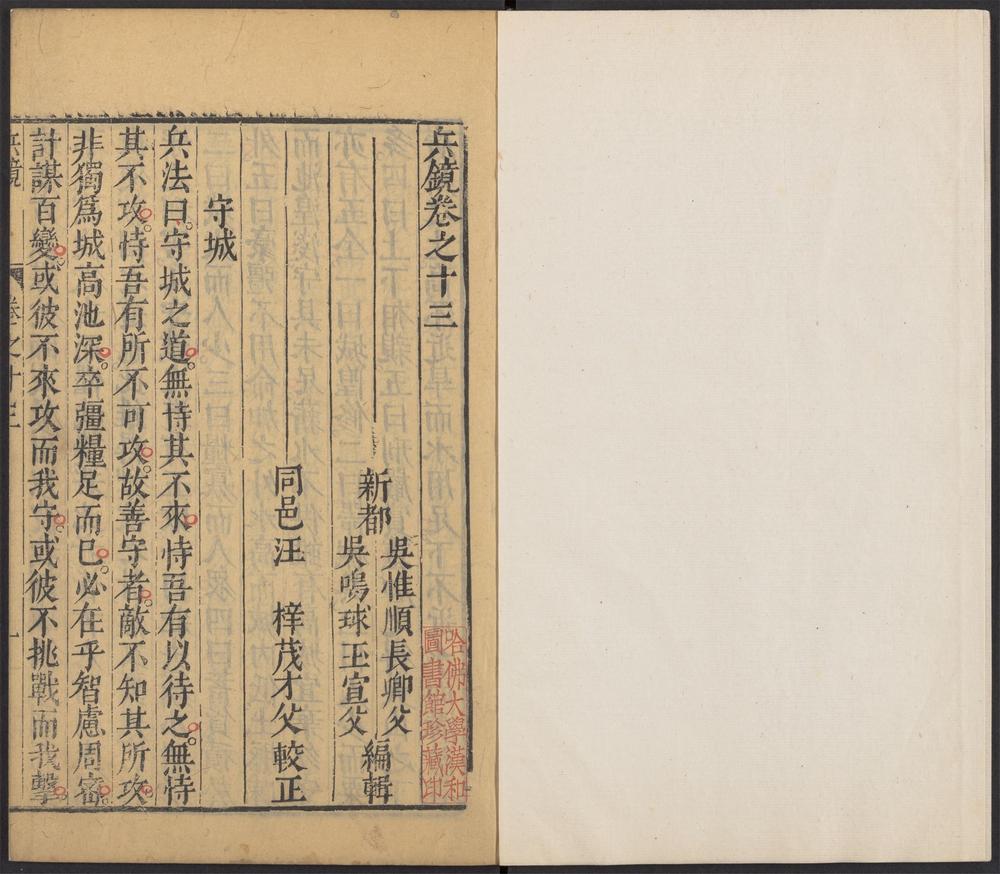 兵鏡卷之十三
新都
吳惟順長卿父
吳鳴球玉宣父
編輯
同邑汪　梓茂才父較正
守城
兵法曰。守城之道。無恃其不來。恃吾有以待之。無恃
其不攻。恃吾有所不可攻。故善守者。敵不知其所攻。
非獨爲城高池深。卒彊糧足而已。必在乎智慮周密。
計謀百變。或彼不來攻而我守。或彼不挑戰而我擊。
兵鏡　卷之十三　一
哈佛大學漢和
圖書館珍藏印